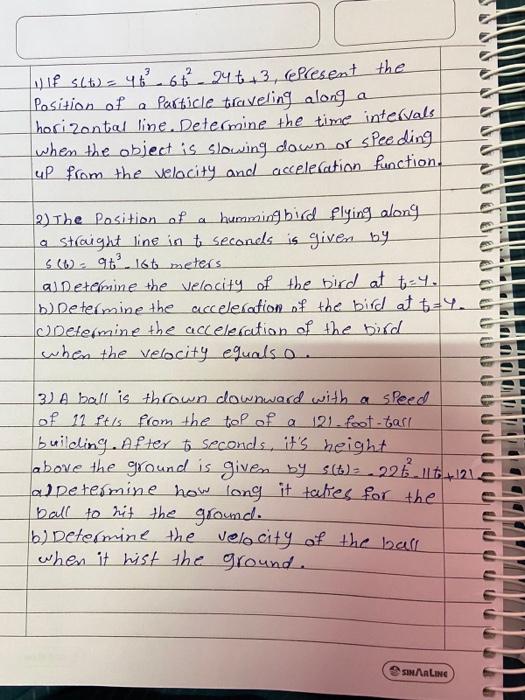 1) If s(t) = 4t³ - 6t² - 24t + 3, represent the
Position of a Particle traveling along a
horizontal line. Determine the time intervals
when the object is slowing down or speeding
up from the velocity and acceleration function.
2) The Position of a hummingbird flying along
a straight line in t seconds is given by
s(t) = 9t³ - 16t meters
a) Determine the velocity of the bird at t=4.
b) Determine the acceleration of the bird at t=4.
c) Determine the acceleration of the bird
when the velocity equals 0.
3) A ball is thrown downward with a speed
of 11 ft/s from the top of a 121-foot-tall
building. After t seconds, it's height
above the ground is given by s(t) = -22t² - 11t + 121.
a) Determine how long it takes for the
ball to hit the ground.
b) Determine the velocity of the ball
when it hist the ground.
SINARLINE